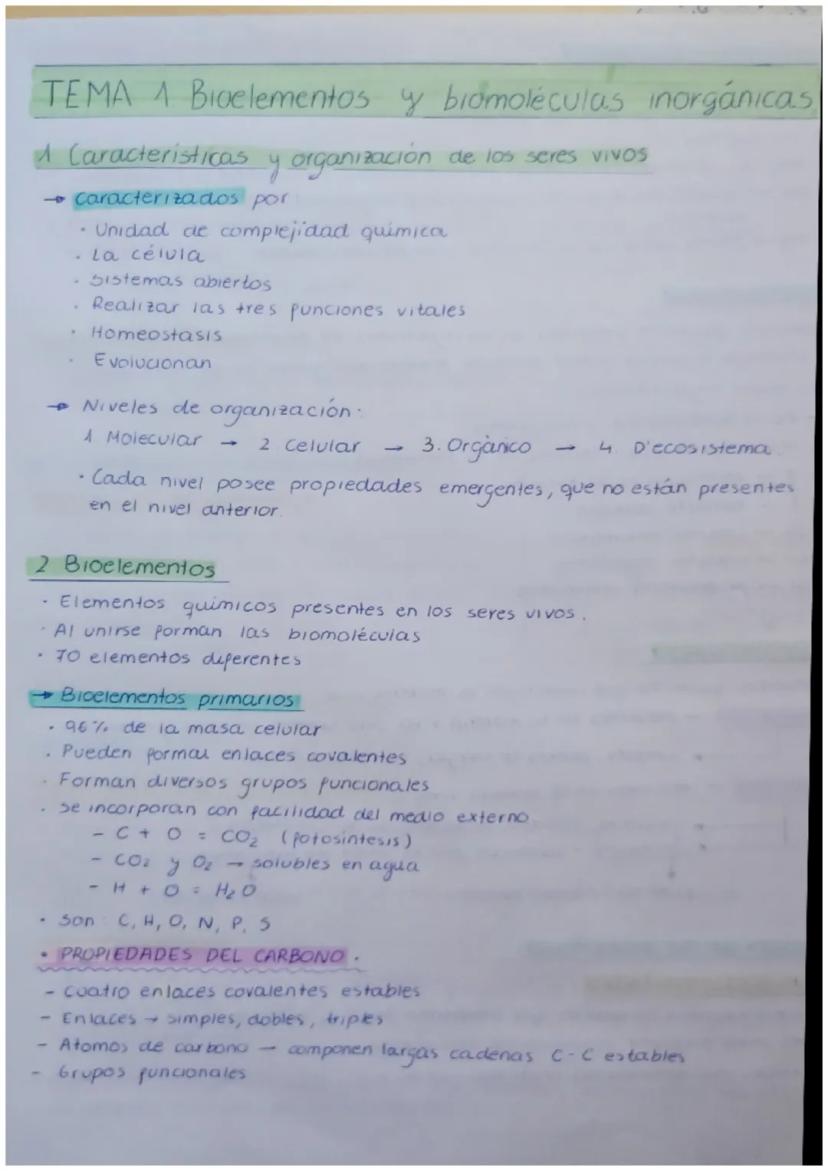 TEMA 1 Bioelementos y biomoléculas inorgánicas
1 Características y organización de los seres vivos
→ caracterizados por:
· Unidad de complejidad química
· La célula
· Sistemas abiertos
· Realizar las tres funciones vitales
· Homeostasis
· Evolucionan
→ Niveles de organización:
1 Molecular → 2 Celular → 3. Orgànico → 4. D'ecosistema
· Cada nivel posee propiedades emergentes, que no están presentes
en el nivel anterior.
2 Bioelementos
· Elementos químicos presentes en los seres vivos.
· Al unirse forman las biomoléculas
· 70 elementos diferentes
→ Bioelementos primarios
· 96% de la masa celular
· Pueden formar enlaces covalentes
· Forman diversos grupos funcionales
· se incorporan con facilidad del medio externo
- C + O = CO₂ (fotosíntesis)
- CO₂ y O₂ → solubles en agua
- H + O = H₂O
· Son: C, H, O, N, P, S
· PROPIEDADES DEL CARBONO.
- Cuatro enlaces covalentes estables
- Enlaces → simples, dobles, triples
- Atomos de carbono → componen largas cadenas C-C estables
- Grupos funcionales